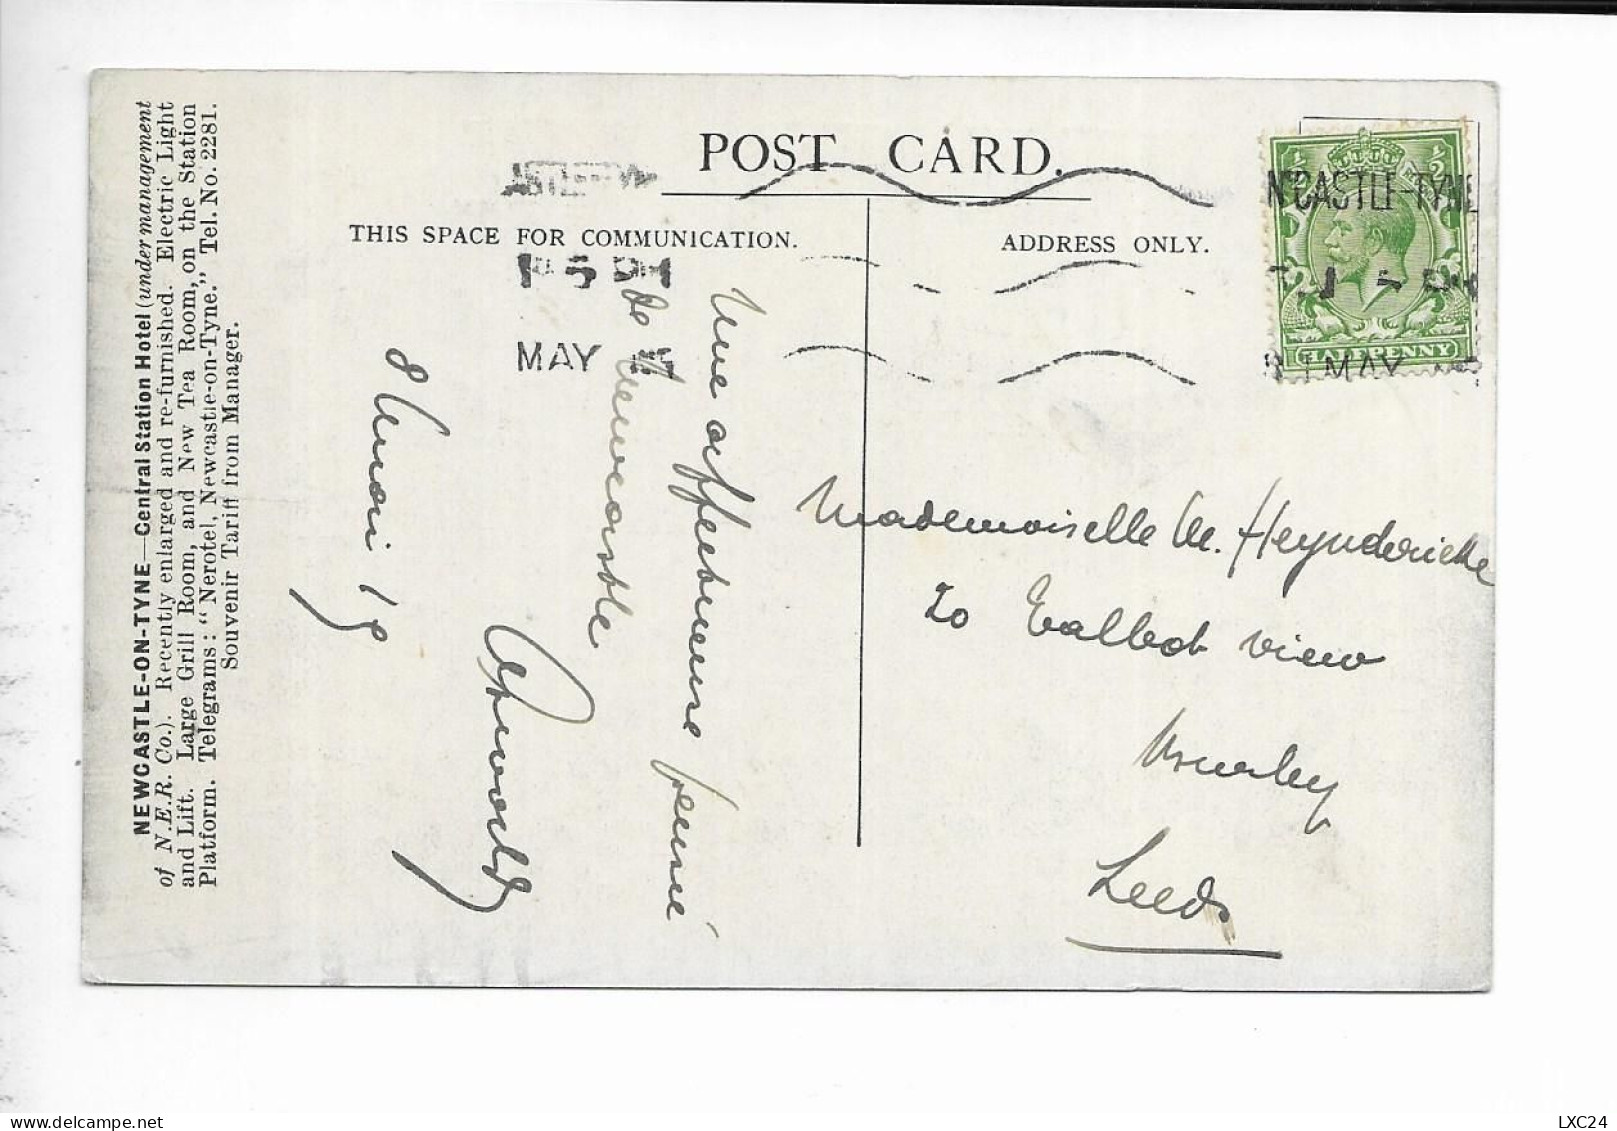 POST CARD.
THIS SPACE FOR COMMUNICATION.
ADDRESS ONLY.
N'CASTLE-TYNE
MAY
MAY
1/2
1/2
HALFPENNY
NEWCASTLE-ON-TYNE—Central Station Hotel (under management
of N.E.R. Co.). Recently enlarged and re-furnished. Electric Light
and Lift. Large Grill Room, and New Tea Room, on the Station
Platform. Telegrams: "Nerotel, Newcastle-on-Tyne." Tel. No. 2281.
Souvenir Tariff from Manager.
Une affectueuse pensée
de Newcastle
8 Mai 19
Mademoiselle M. Heynderickx
20 Talbot view
Leeds
LXC24